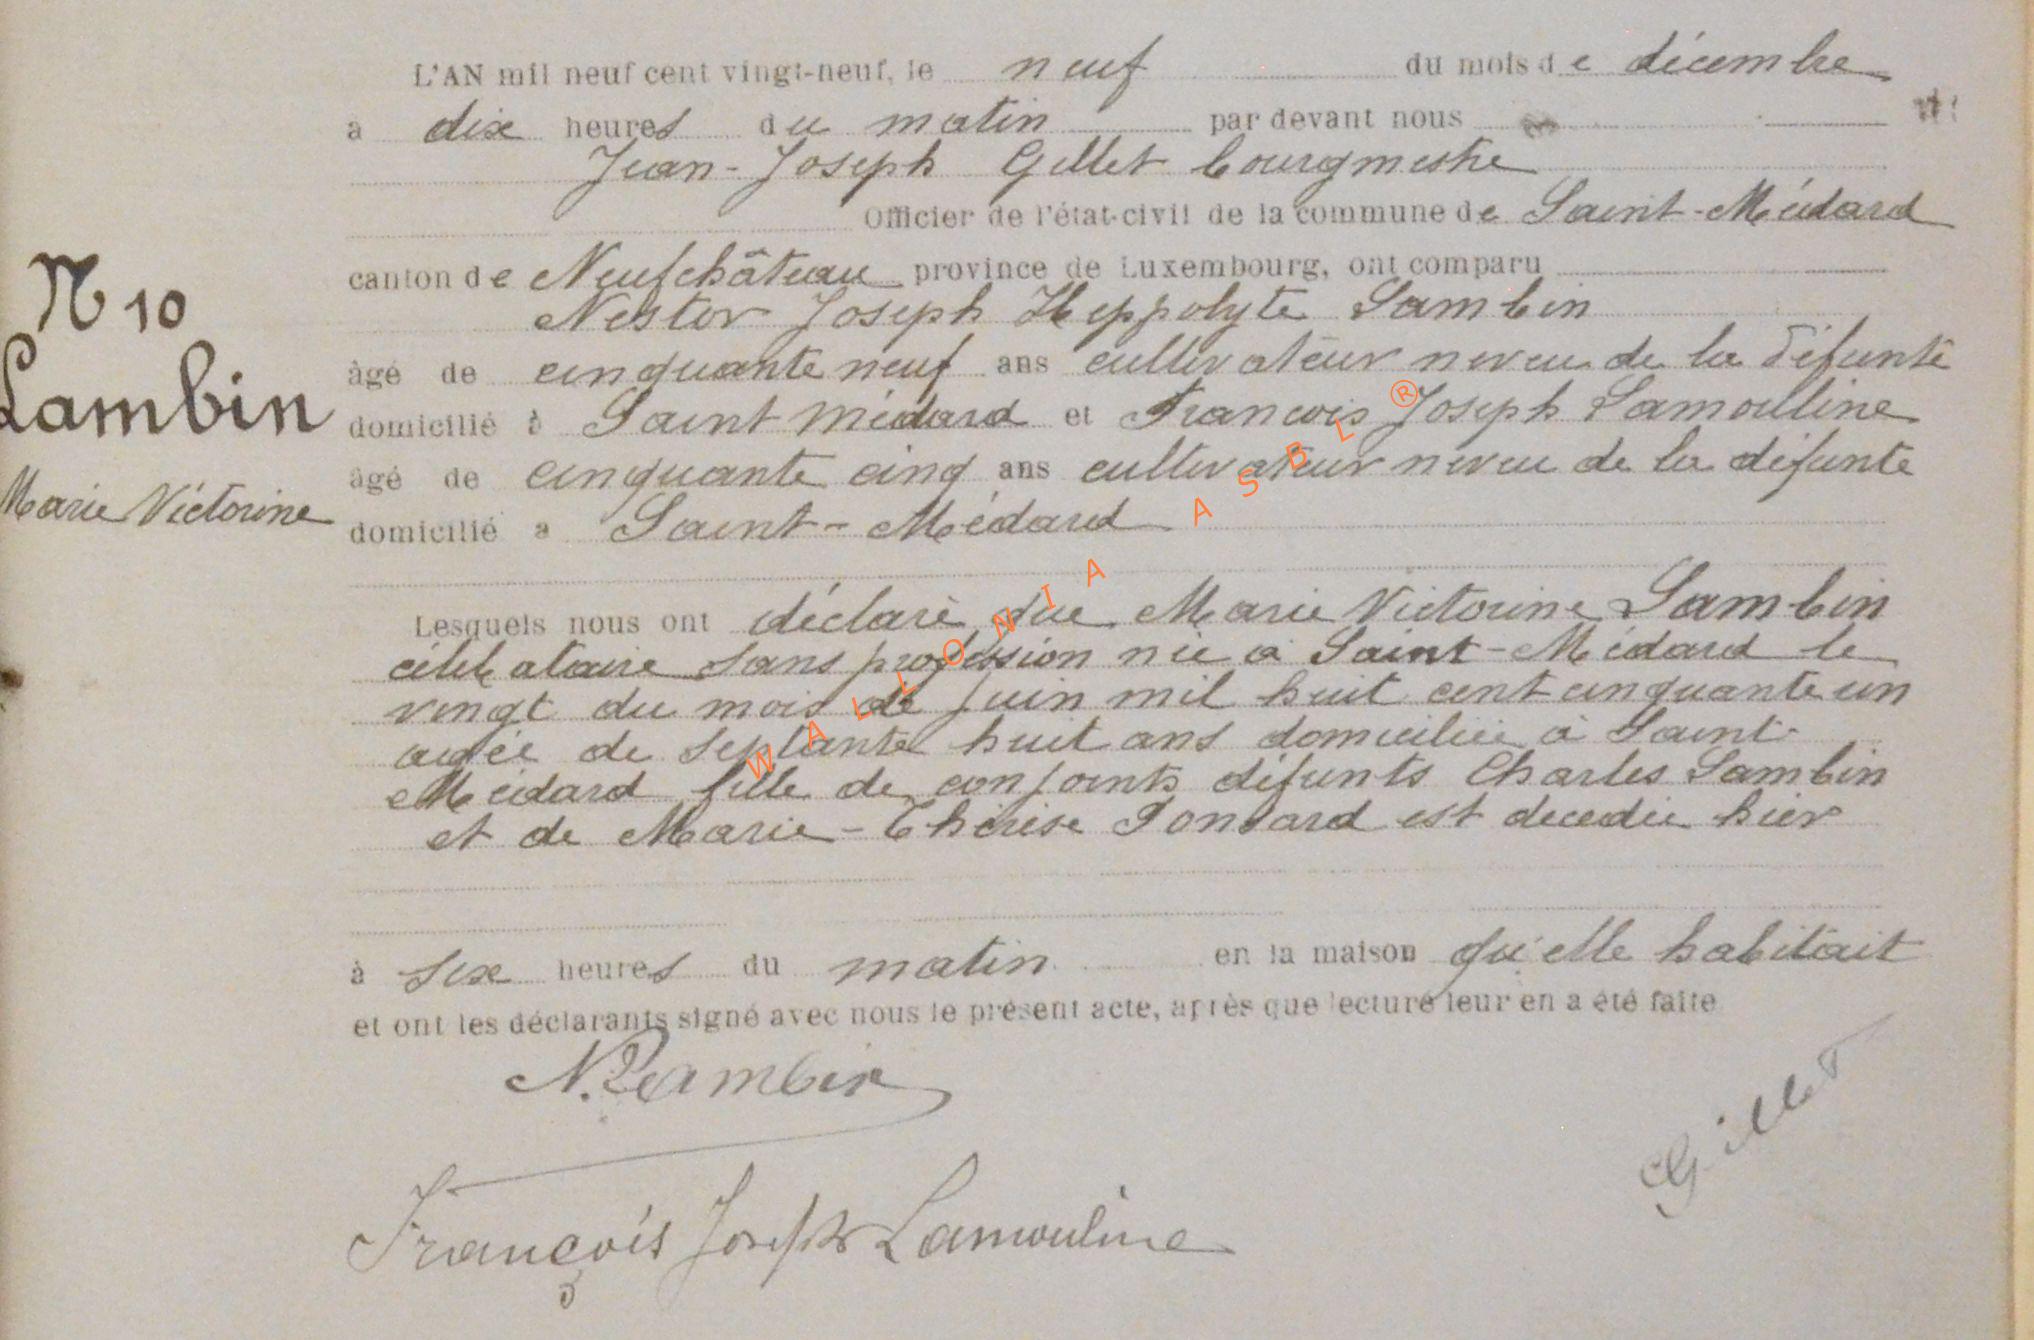 L'AN mil neuf cent vingt-neuf, le neuf du mois de décembre
à dix heures du matin par devant nous
Jean-Joseph Gillet bourgmestre
Officier de l'état-civil de la commune de Saint-Médard
canton de Neufchâteau province de Luxembourg, ont comparu
Nestor Joseph Hippolyte Lambin
N 10
Lambin
Marie Victorine
âgé de cinquante neuf ans cultivateur neveu de la défunte
domicilié à Saint Médard et Francois Joseph Lamouline
âgé de cinquante cinq ans cultivateur neveu de la défunte
domicilié a Saint-Médard
Lesquels nous ont déclaré que Marie Victorine Lambin
célibataire sans profession née à Saint-Médard le
vingt du mois de juin mil huit cent cinquante un
agée de septante huit ans domiciliée à Saint-
Médard fille de conjoints défunts Charles Lambin
et de Marie-Thérèse Ponsard est décédée hier
à six heures du matin en la maison qu'elle habitait
et ont les déclarants signé avec nous le présent acte, après que lecture leur en a été faite
N. Lambin
Gillet
François Joseph Lamouline
WALLONIA ASBL ®